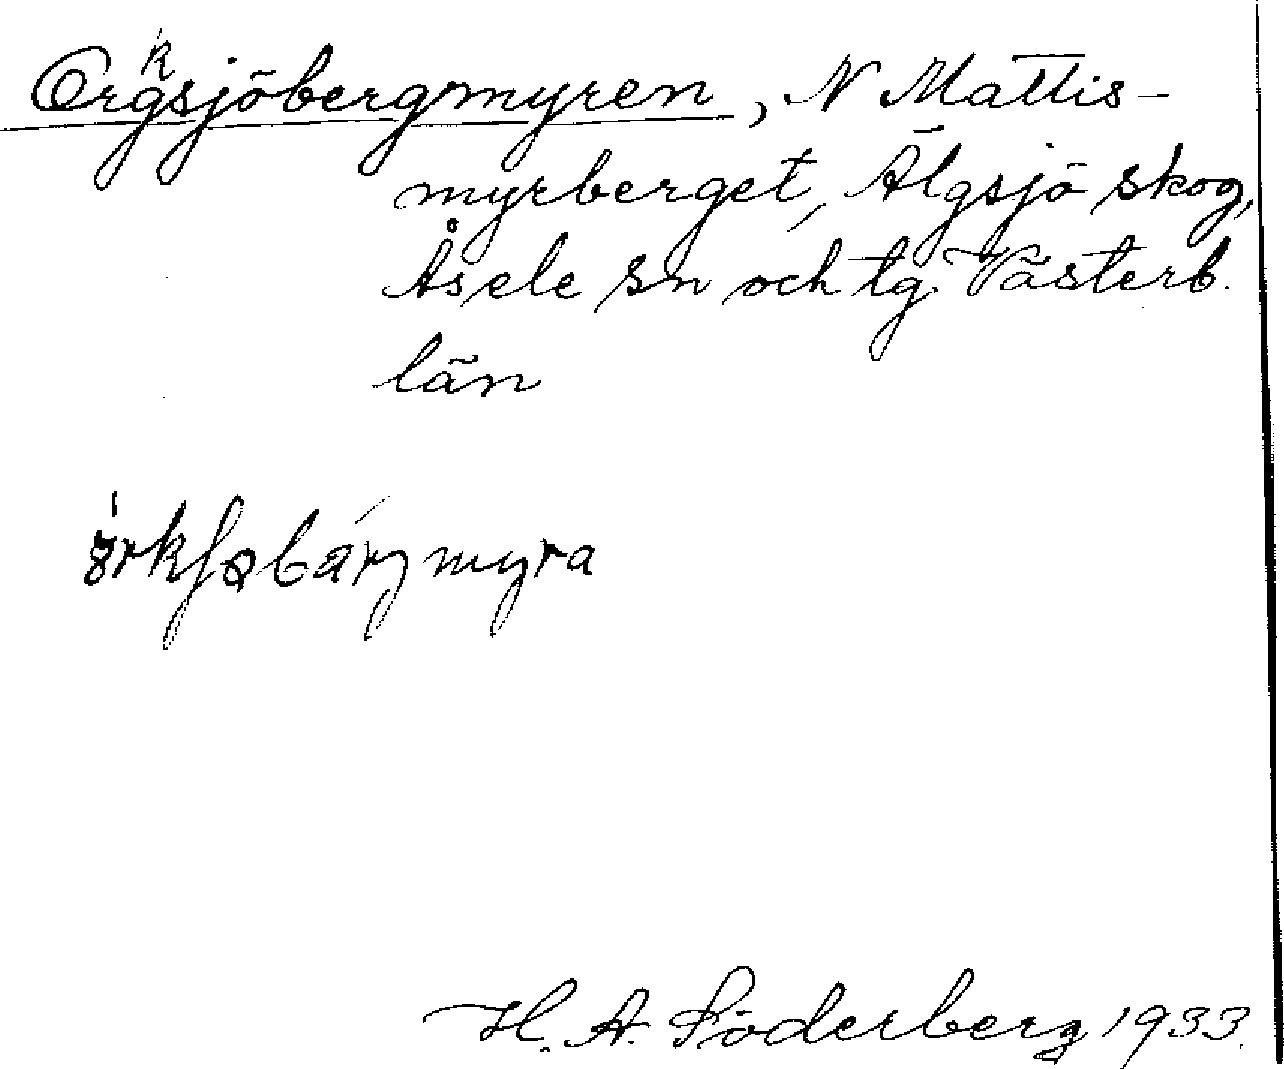 Orgsjöbergmyren, N Mattis-
k
myrberget, Älgsjö skog,
Åsele sn och lg. Västerb.
län
myra
H. A. Söderberg 1933.